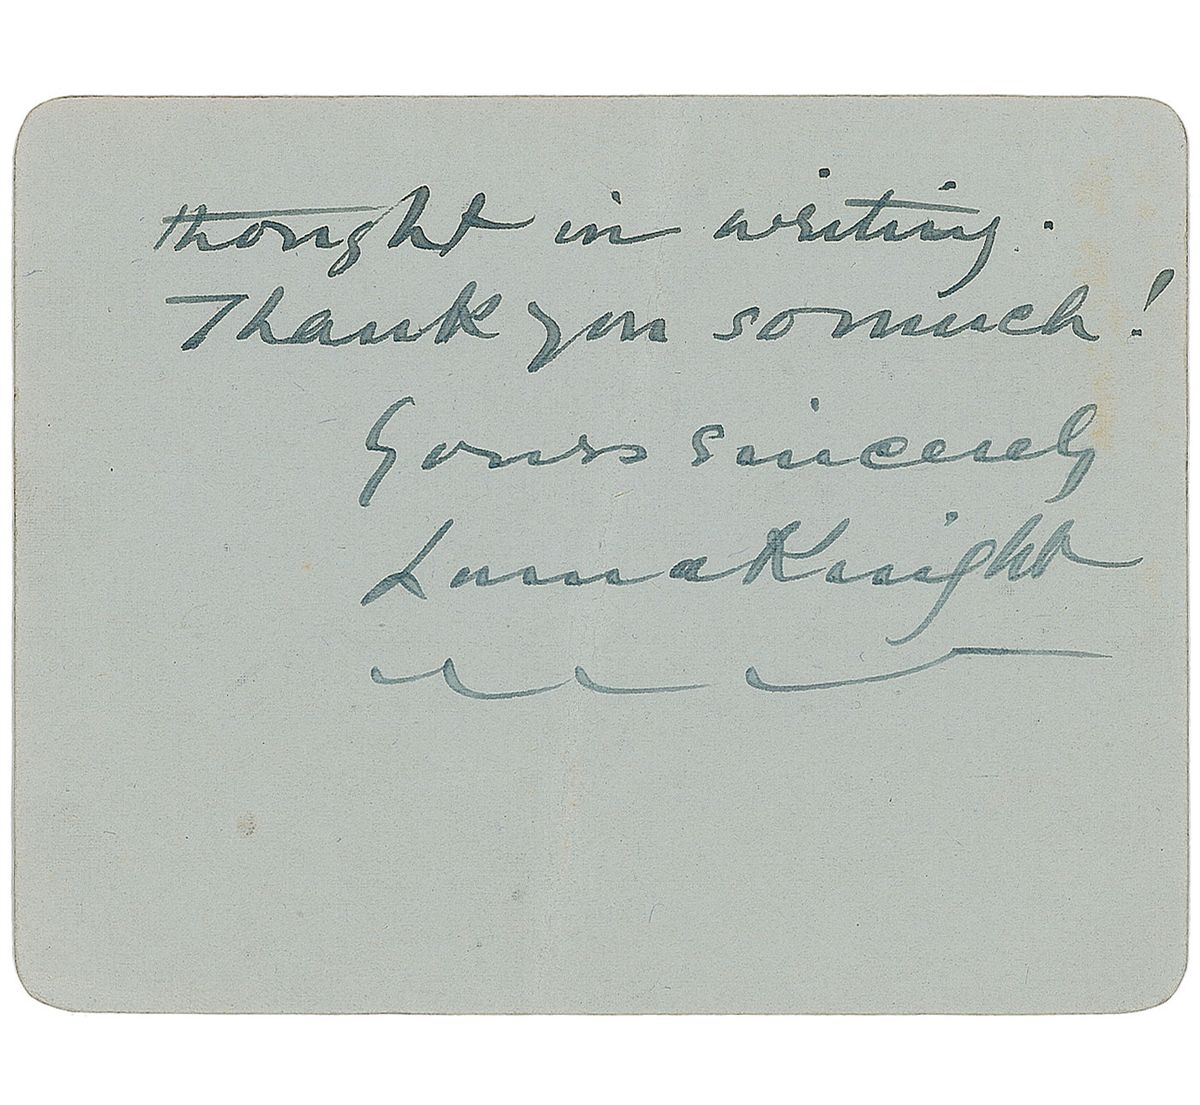 thought in writing.
Thank you so much!
Yours sincerely
Laura Knight